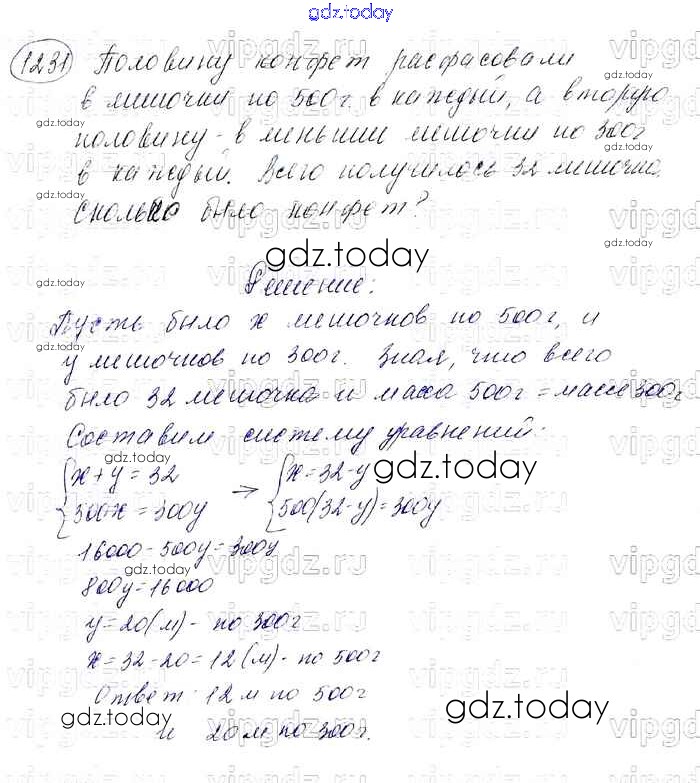 gdz.today
1231 Половину конфет расфасовали
в мешочки по 500г в каждый, а вторую
половину - в меньшии мешочки по 300г
в каждый. Всего получилось 32 мешочка.
Сколько было конфет?
gdz.today
Решение:
Пусть было x мешочков по 500г, и
y мешочков по 300г. Зная, что всего
было 32 мешочка и масса 500г = массе 300г
Составим систему уравнений:
x + y = 32 → x = 32 - y
500·x = 300y 500(32 - y) = 300y
16000 - 500y = 300y
800y = 16000
y = 20(м) - по 300г
x = 32 - 20 = 12 (м) - по 500г
Ответ: 12 м по 500г
и 20 м по 300г.
gdz.today
vipgdz.ru